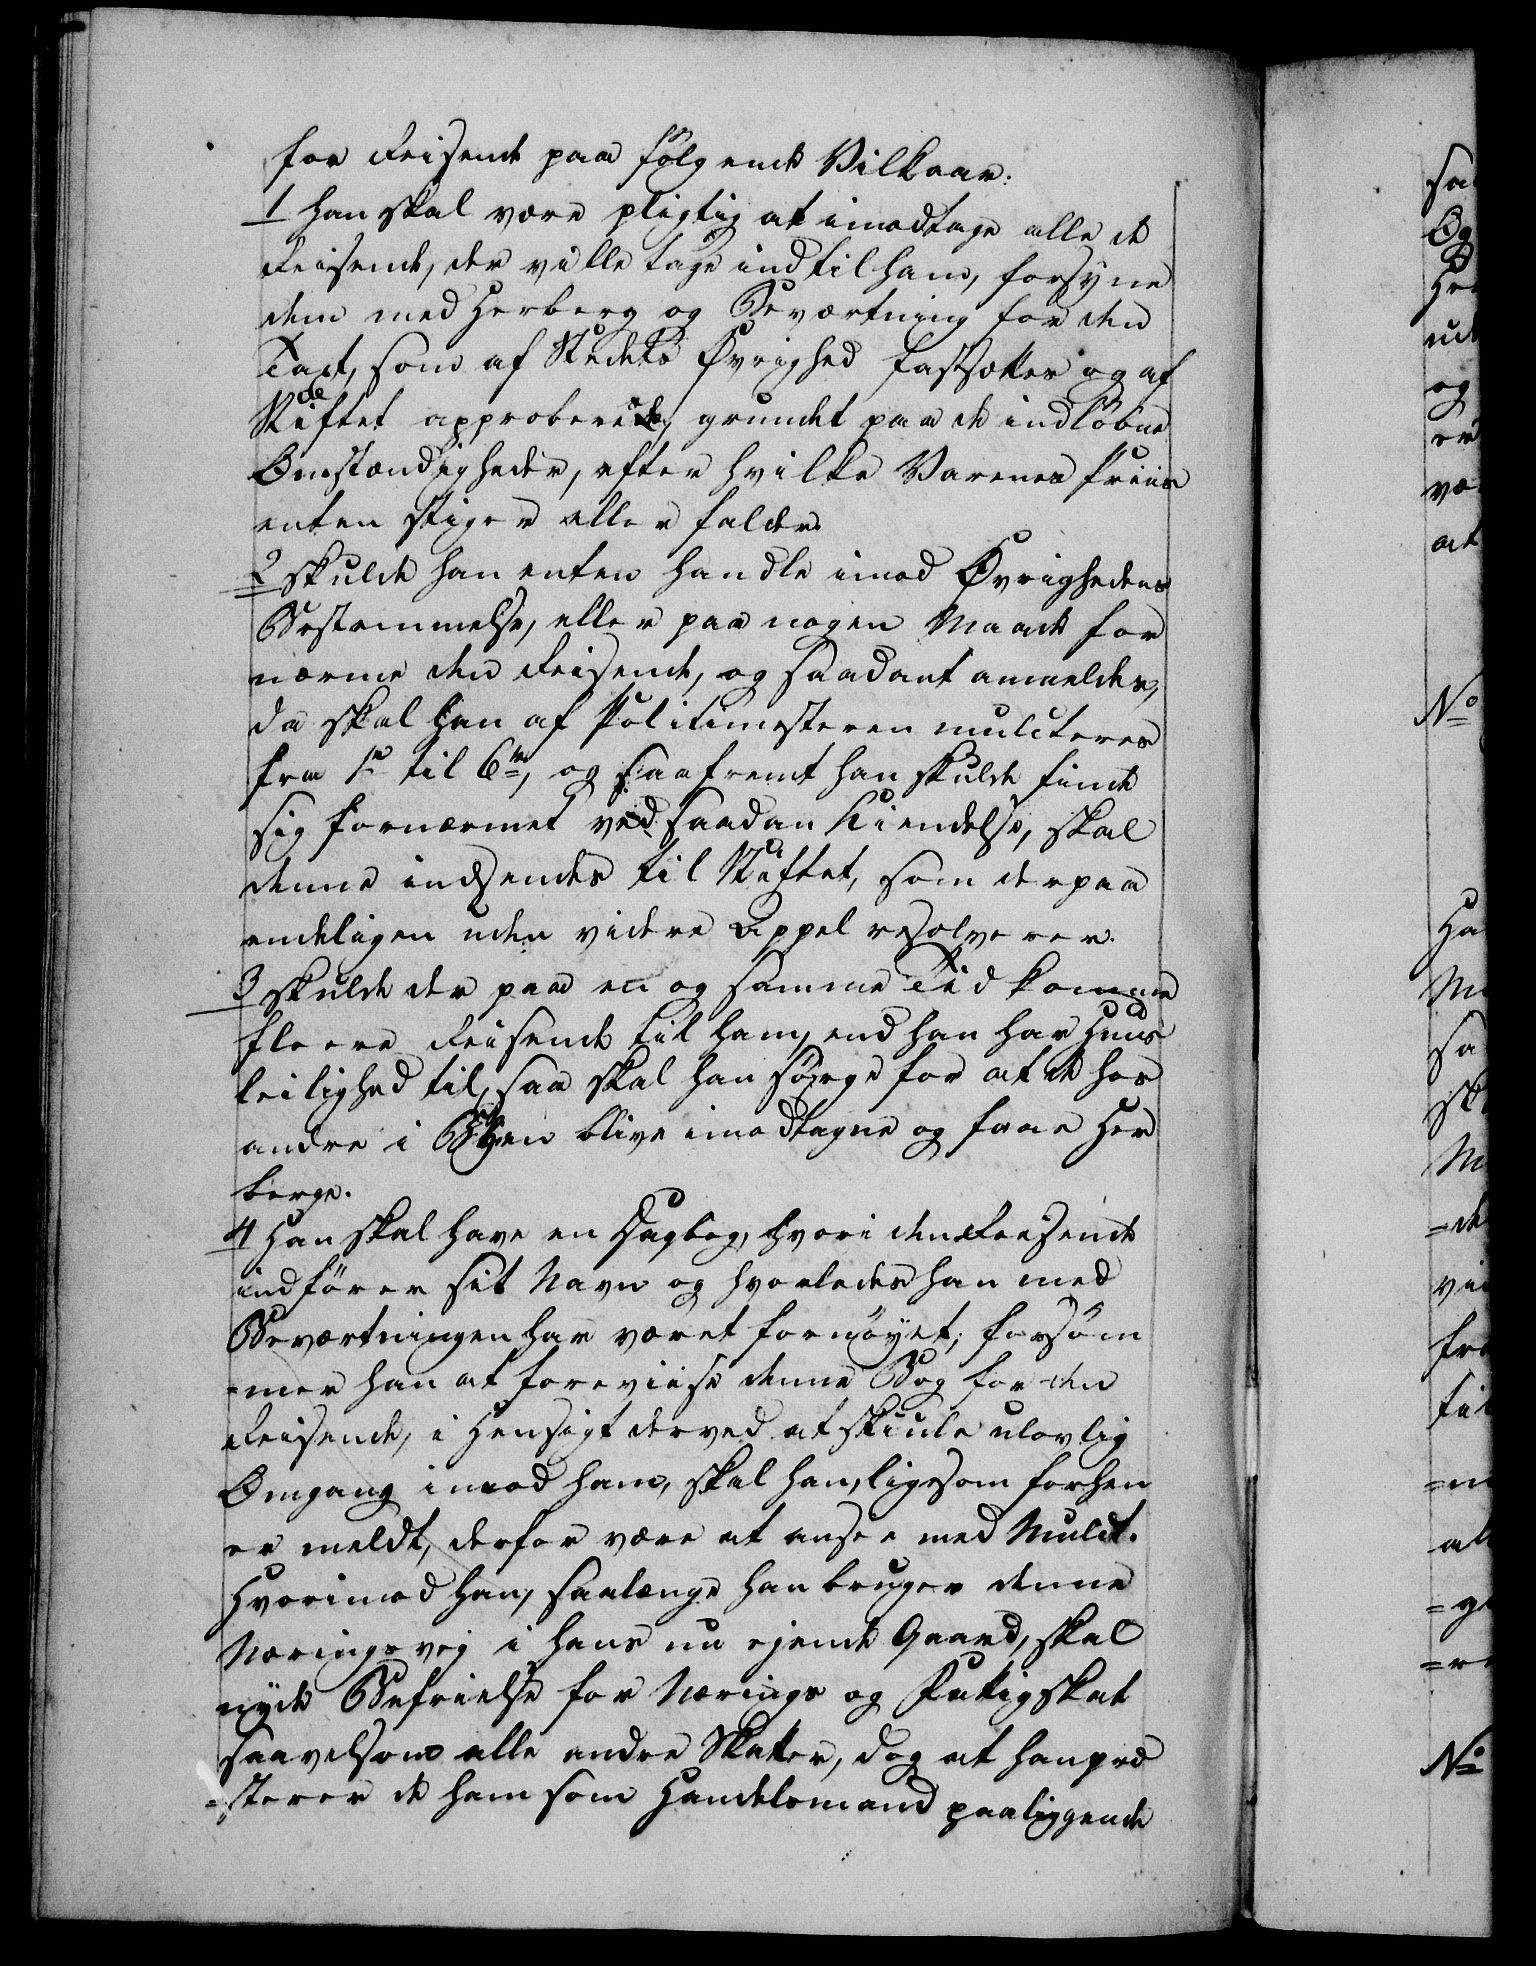 for Reisende paa følgende Vilkaar:
1 han skal være pligtig at imodtage alle de
Reisende, der ville tage ind til ham, forsyne
dem med Herberg og Beværtning for den
Taxt, som af Stedets Øvrighed fastsættes og af
Stiftet approberes, grundet paa de indløbne
Omstændigheder, efter hvilke Varenes Priis
enten stiger eller falder.
2 skulde han enten handle imod Øvrighedens
Bestemmelse, eller paa nogen Maade for
nærme den Reisende, og saadant anmeldes,
da skal han af Politimesteren mulcteres
fra 1 rd til 6 rd, og saafremt han skulde finde
sig fornærmet ved saadan Kiendelse, skal
denne indsendes til Stiftet, som derpaa
endeligen uden videre Appel resolverer.
3 skulde der paa en og samme Tid komme
fleere Reisende til ham, end han har Huus
leilighed til, saa skal han sørge for at de hos
andre i Byen blive imodtagne og faae Her
berge.
4 Han skal have en Dagbog, hvori den Reisende
indfører sit Navn og hvorledes han med
Beværtningen har været fornøyet; forsøm
=mer han at foreviise denne Bog for den
Reisende, i Hensigt derved at skiule ulovlig
Omgang imod ham, skal han, ligesom forhen
er meldt, derfor være at ansee med Mulct.
Hvorimod han, saalænge han bruger denne
Næringsvej i hans nu ejende Gaard, skal
nyde Befrielse for Nærings og Fattigskat
saavelsom alle andre Skatter, dog at han præ
=sterer de ham som Handelsmand paaliggende